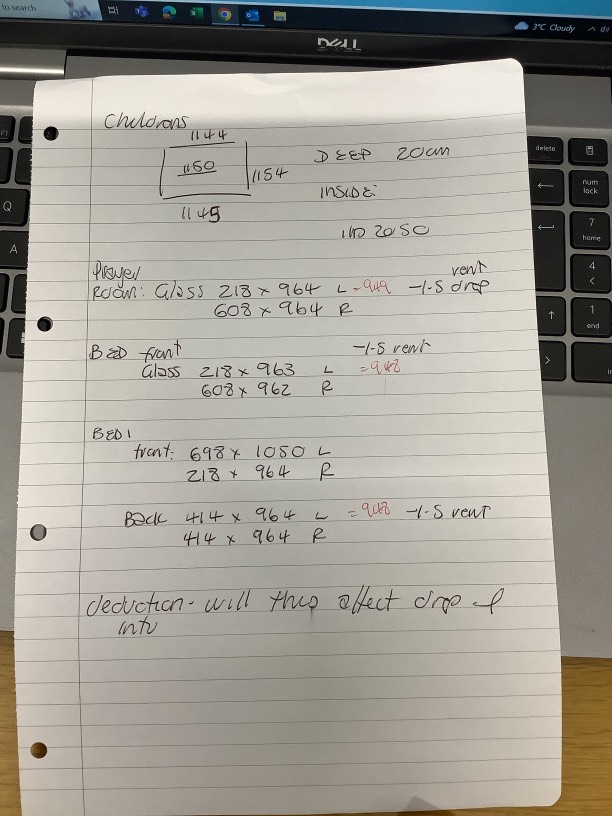 to search
3°C Cloudy
DELL
delete
num
lock
7
home
4
1
end
Q
A
Childrens
1144
1150
1154
1145
DEEP 20cm
INSIDE:
2050
Prayer
Room: Glass 218 x 964 L = 949 -1.5 vent drop
608 x 964 R
BED front -1.5 vent
Glass 218 x 963 L = 948
608 x 962 R
BED 1
front: 698 x 1050 L
218 x 964 R
Back 414 x 964 L = 948 -1.5 vent
414 x 964 R
deduction - will this affect drop of
intu